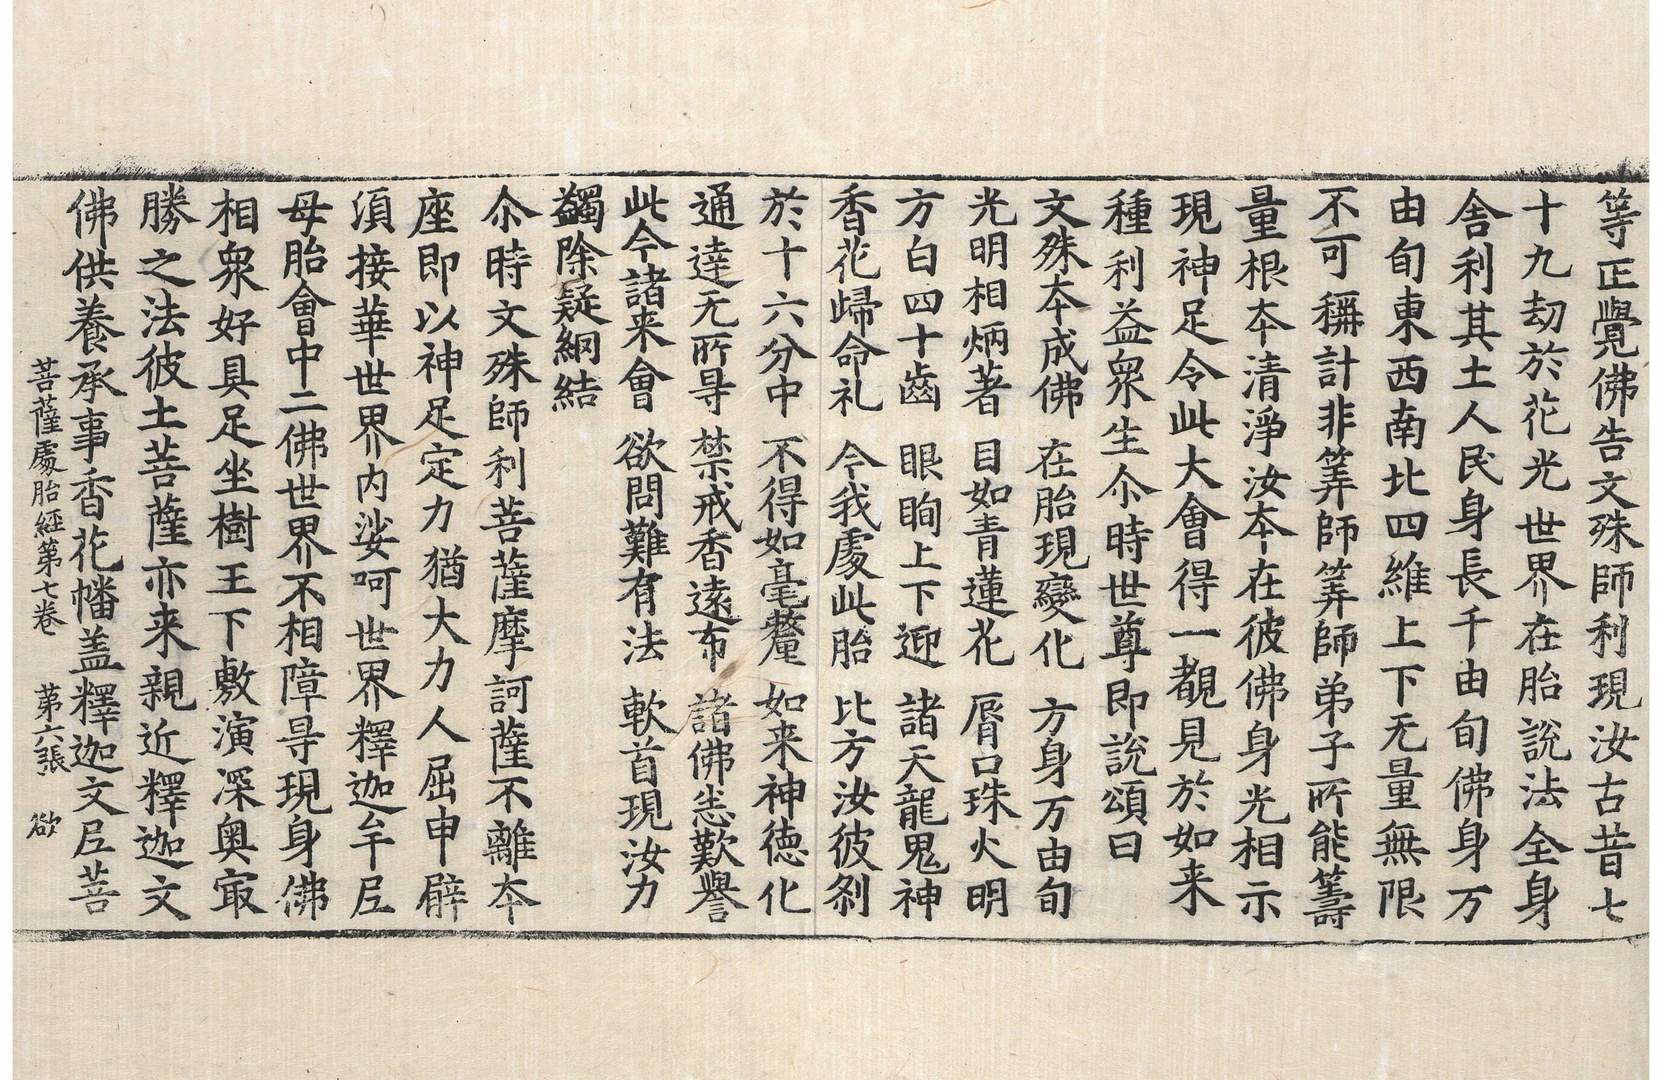 等正覺佛告文殊師利現汝古昔七
十九劫於花光世界在胎說法全身
舍利其土人民身長千由旬佛身万
由旬東西南北四維上下无量無限
不可稱計非筭師筭師弟子所能籌
量根夲清淨汝夲在彼佛身光相示
現神足令此大會得一覩見於如来
種利益眾生尒時世尊即說頌曰
文殊夲成佛 在胎現變化 方身万由旬
光明相炳著 目如青蓮花 脣口珠火明
方白四十齒 眼眴上下迎 諸天龍鬼神
香花歸命礼 今我處此胎 比方汝彼刹
於十六分中 不得如毫釐 如来神德化
通達无所㝵 禁戒香遠布 諸佛悉歎譽
此今諸来會 欲問難有法 軟首現汝力
蠲除疑網結
尒時文殊師利菩薩摩訶薩不離夲
座即以神足定力猶大力人屈申臂
湏接華世界内娑呵世界釋迦牟尼
母胎會中二佛世界不相障㝵現身佛
相衆好具足坐樹王下敷演深奥㝡
勝之法彼土菩薩亦来親近釋迦文
佛供養承事香花幡盖釋迦文尼菩
菩薩處胎經第七卷 第六張 欲